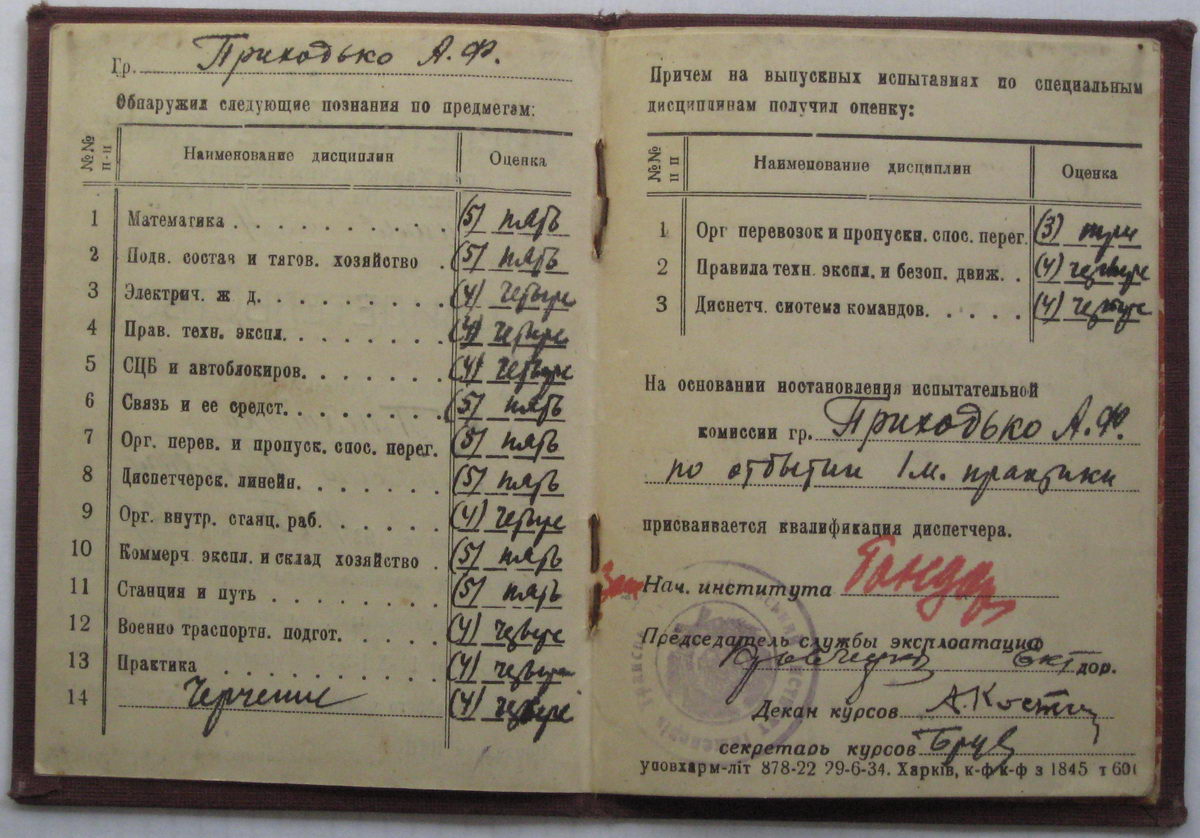 Гр. Приходько А. Ф.
Обнаружил следующие познания по предметам:
№№ п-п Наименование дисциплин Оценка
1 Математика (5) пять
2 Подв. состав и тягов. хозяйство (5) пять
3 Электрич. ж д. (4) четыре
4 Прав. техн. экспл. (4) четыре
5 СЦБ и автоблокиров. (4) четыре
6 Связь и ее средст. (5) пять
7 Орг. перев. и пропуск. спос. перег. (5) пять
8 Диспетчерск. линейн. (5) пять
9 Орг. внутр. станц. раб. (4) четыре
10 Коммерч. экспл. и склад хозяйство (5) пять
11 Станция и путь (5) пять
12 Военно траспортн. подгот. (4) четыре
13 Практика (4) четыре
14 Черчение (4) четыре
Причем на выпускных испытаниях по специальным
дисциплинам получил оценку:
№№ п п Наименование дисциплин Оценка
1 Орг перевозок и пропускн. спос. перег. (3) три
2 Правила техн. экспл. и безоп. движ. (4) четыре
3 Диспетч. система командов. (4) четыре
На основании постановления испытательной
комиссии гр. Приходько А. Ф.
по отбытии 1 м. практики
присваивается квалификация диспетчера.
Зам Нач. института
Председатель службы эксплоатации
дор.
Декан курсов А. Костин
секретарь курсов
уповхарм-літ 878-22 29-6-34. Харків, к-ф к-ф з 1845 т 600